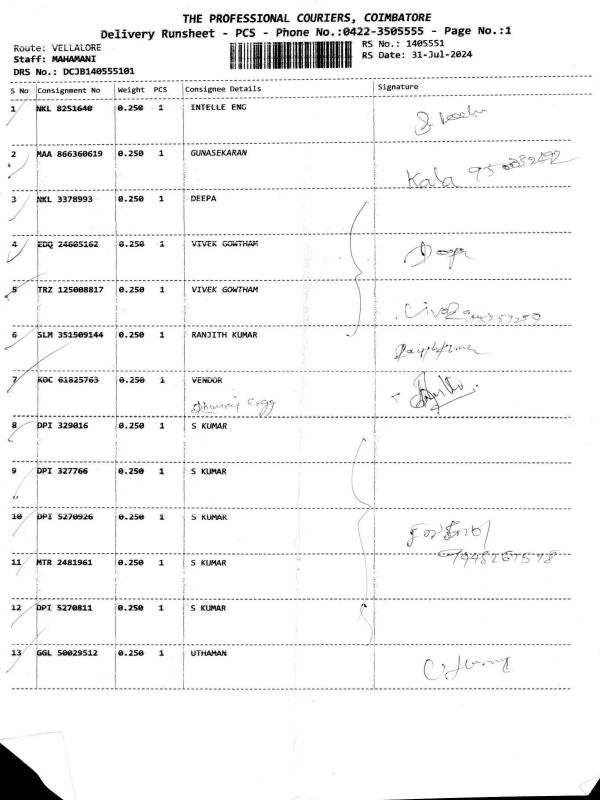 THE PROFESSIONAL COURIERS, COIMBATORE
Delivery Runsheet - PCS - Phone No.:0422-3505555 - Page No.:1
Route: VELLALORE
RS No.: 1405551
Staff: MAHAMANI
RS Date: 31-Jul-2024
DRS No.: DCJB140555101
S No Consignment No Weight PCS Consignee Details Signature
1 NKL 8251640 0.250 1 INTELLE ENG
2 MAA 866360619 0.250 1 GUNASEKARAN
Kala
3 NKL 3378993 0.250 1 DEEPA
4 EDQ 24605162 0.250 1 VIVEK GOWTHAM
5 TRZ 125008817 0.250 1 VIVEK GOWTHAM
6 SLM 351509144 0.250 1 RANJITH KUMAR
7 KOC 61825763 0.250 1 VENDOR
8 DPI 329016 0.250 1 S KUMAR
9 DPI 327766 0.250 1 S KUMAR
10 DPI 5270926 0.250 1 S KUMAR
11 MTR 2481961 0.250 1 S KUMAR
12 DPI 5270811 0.250 1 S KUMAR
13 GGL 50029512 0.250 1 UTHAMAN